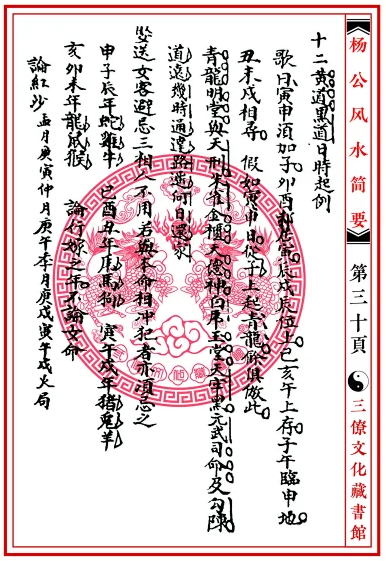 杨公风水简要
第三十頁
三僚文化藏書館
十二黄道黑道日時起例
歌曰寅申須加子卯酉却在寅辰戌辰位上巳亥午上存子午臨申地
丑未戌相尋 假如寅申日從子上起青龍餘俱倣此
青龍明堂與天刑朱雀金櫃天德神白虎玉堂天牢黑元武司命及勾陳
道遠幾時通達路遥何日還鄉
娶送女客避忌三相人不用若與本命相冲犯者亦須忌之
申子辰年蛇雞牛 巳酉丑年虎馬狗 寅午戌年猪兔羊
亥卯未年龍鼠猴 論行嫁之年不論女命
論紅沙 孟月庚寅仲月庚午季月庚戌寅午戌火局